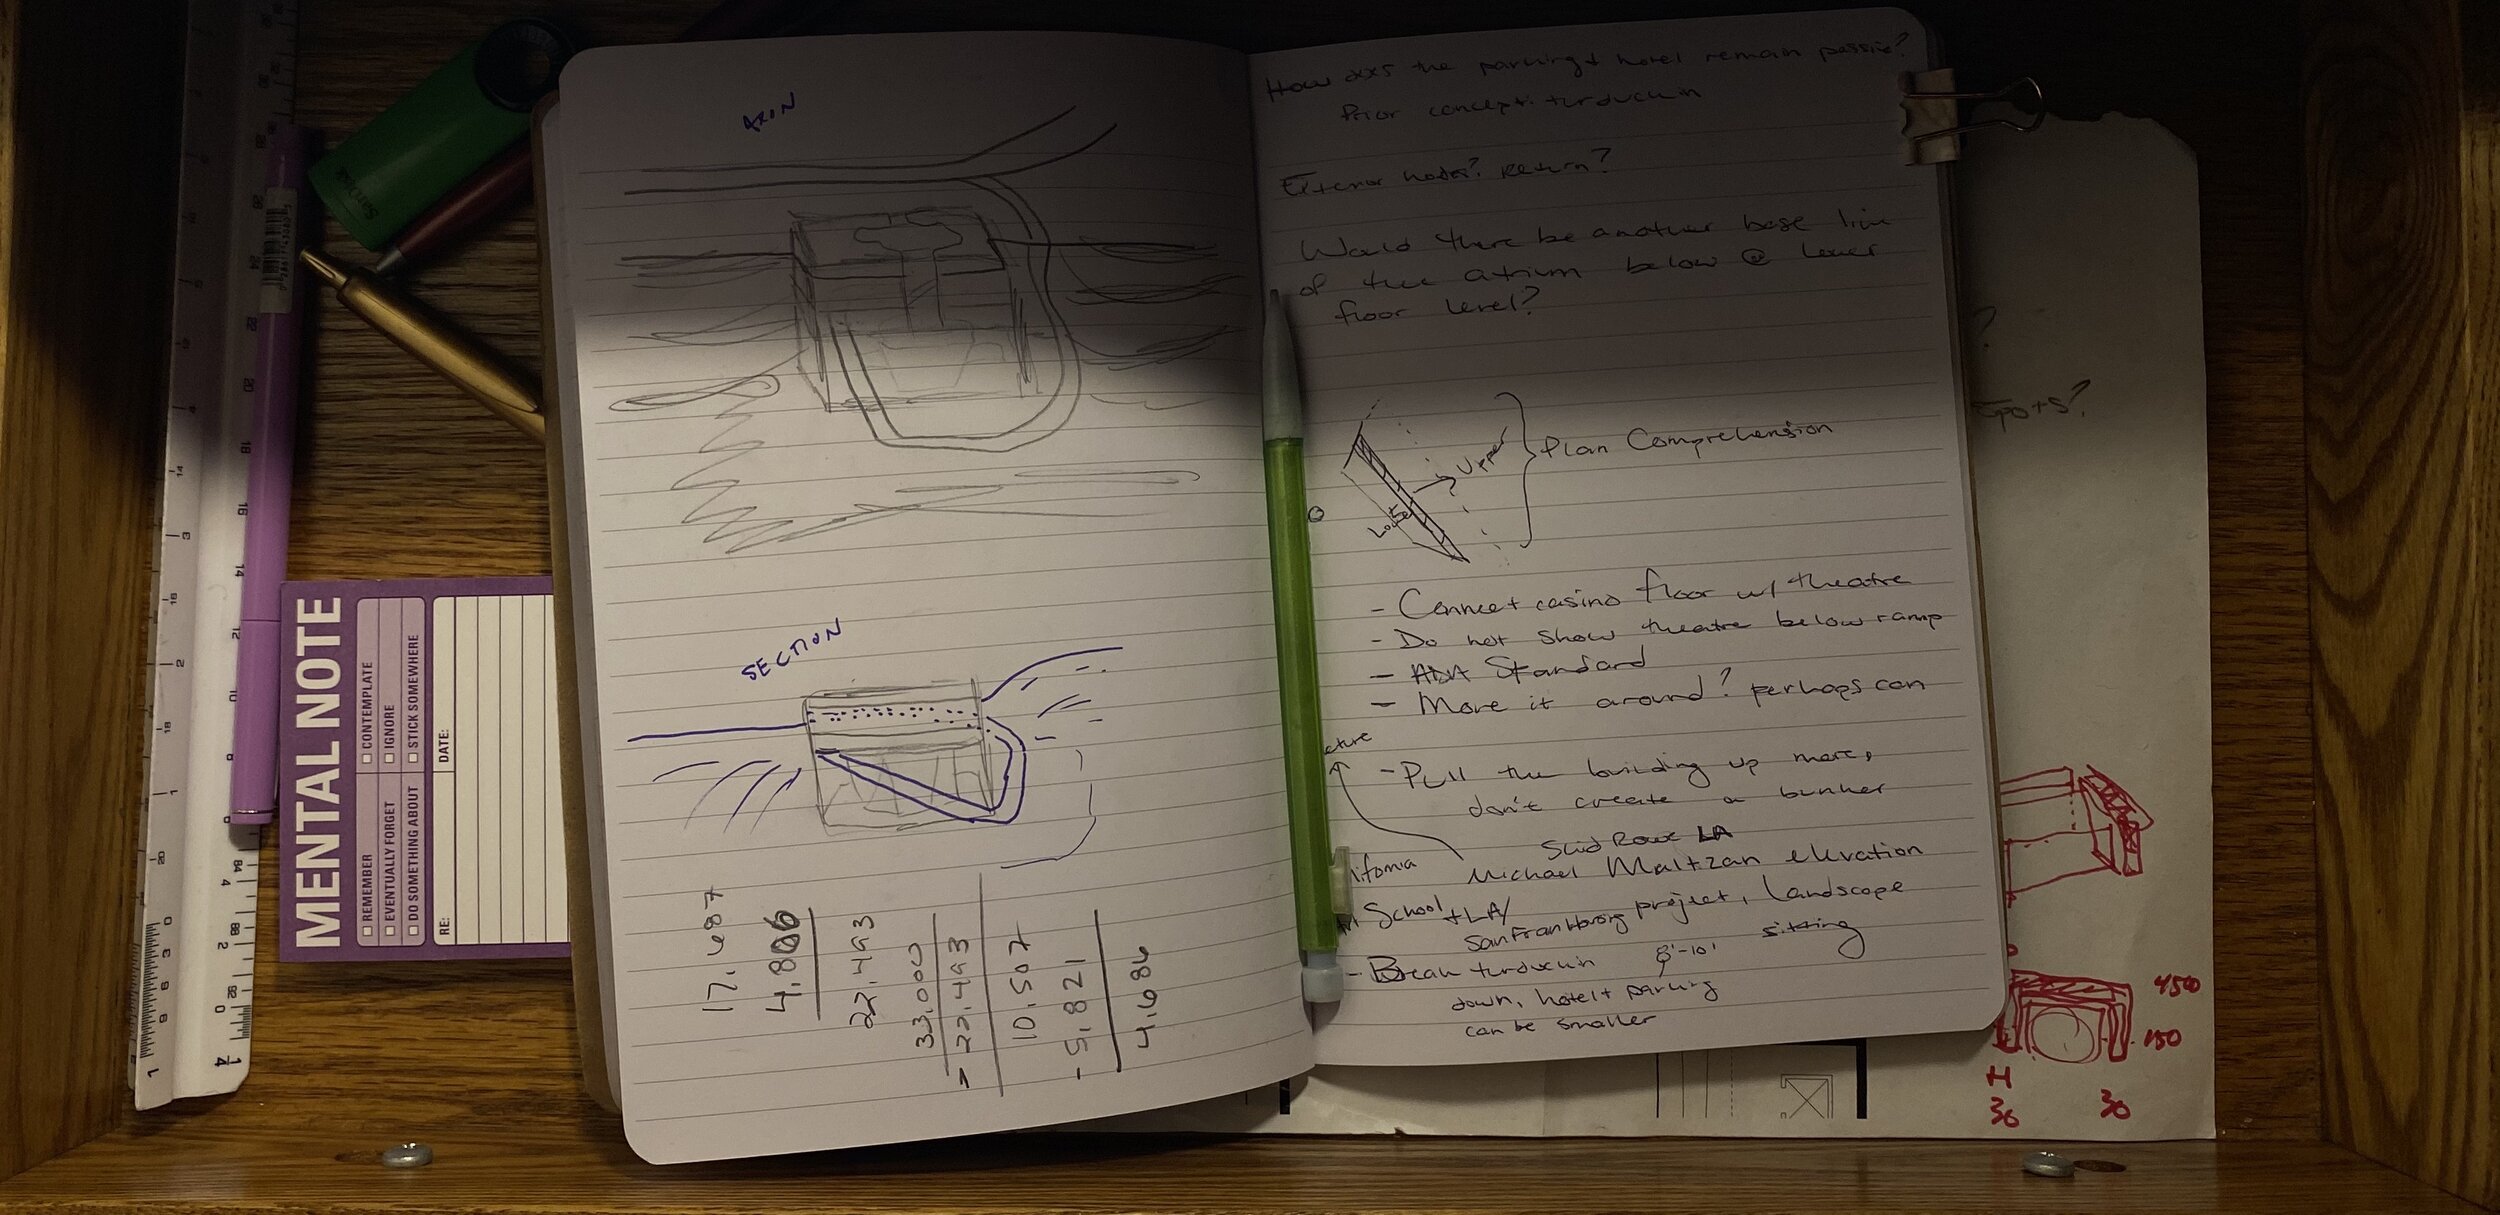 AXON
SECTION
17.687
4.806
22.493
33.000
- 22.493
10.507
- 5.821
4.686
How does the parking + hotel remain passive?
Prior concept: turduckin
Exterior node? Return?
Would there be another base line
of the atrium below @ lower
floor level?
Upper
Lower
Plan Comprehension
- Connect casino floor w/ theatre
- Do not show theatre below ramp
- ADA Standard
- More it around? perhaps can
- Pull the building up more,
don't create a bunker
Skid Rowe LA
Michael Maltzan elevation
School + LA/
San Fran Housing project, Landscape
sitting
- Break turduckin 8'-10'
down, hotel + parking
can be smaller
cture
lifornia
?
spots?
450
150
36
36
MENTAL NOTE
REMEMBER
EVENTUALLY FORGET
DO SOMETHING ABOUT
CONTEMPLATE
IGNORE
STICK SOMEWHERE
RE:
DATE: